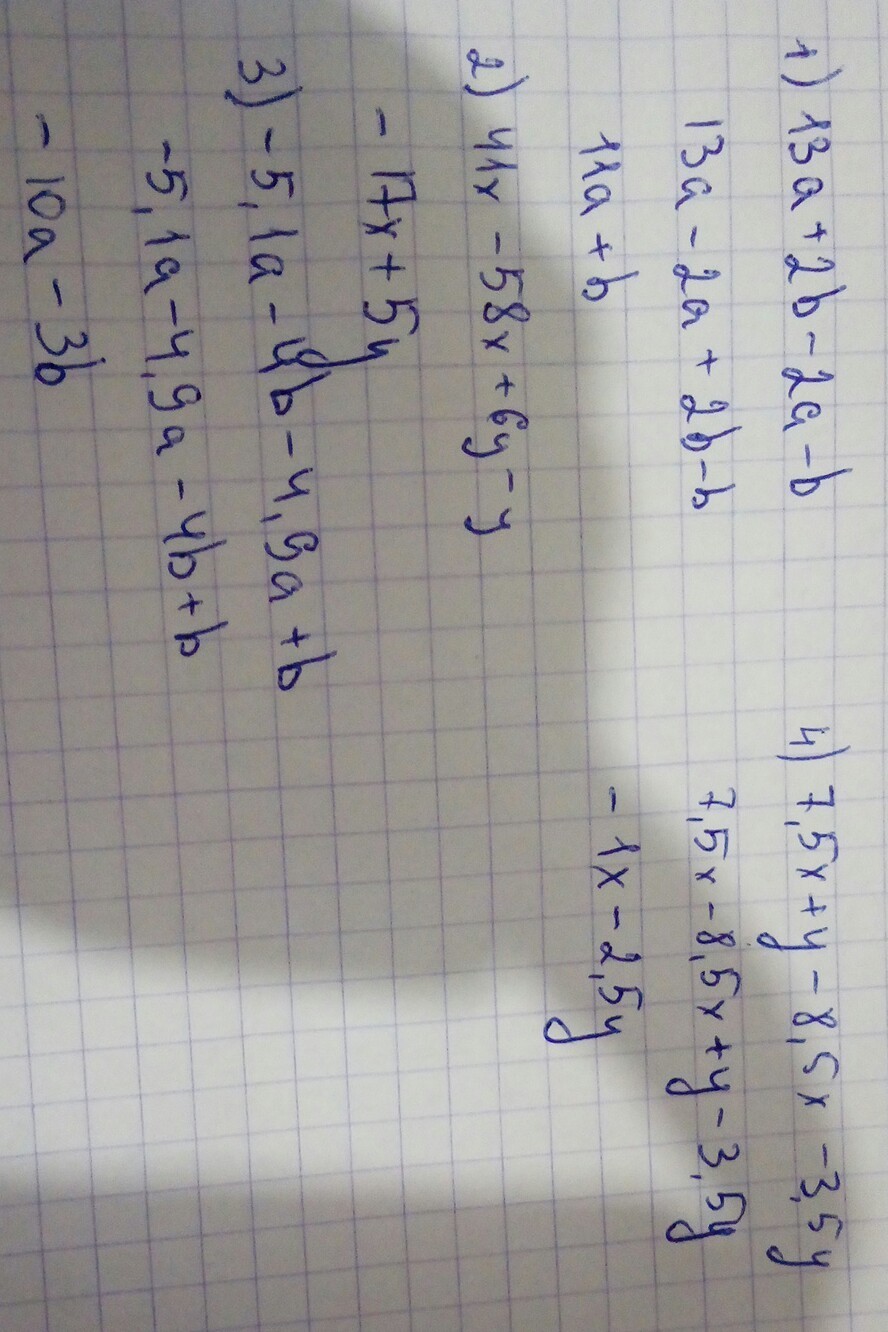 1) 13a + 2b - 2a - b
13a - 2a + 2b - b
11a + b
2) 41x - 58x + 6y - y
- 17x + 5y
3) - 5,1a - 4b - 4,9a + b
-5,1a - 4,9a - 4b + b
- 10a - 3b
4) 7,5x + y - 8,5x - 3,5y
7,5x - 8,5x + y - 3,5y
- 1x - 2,5y